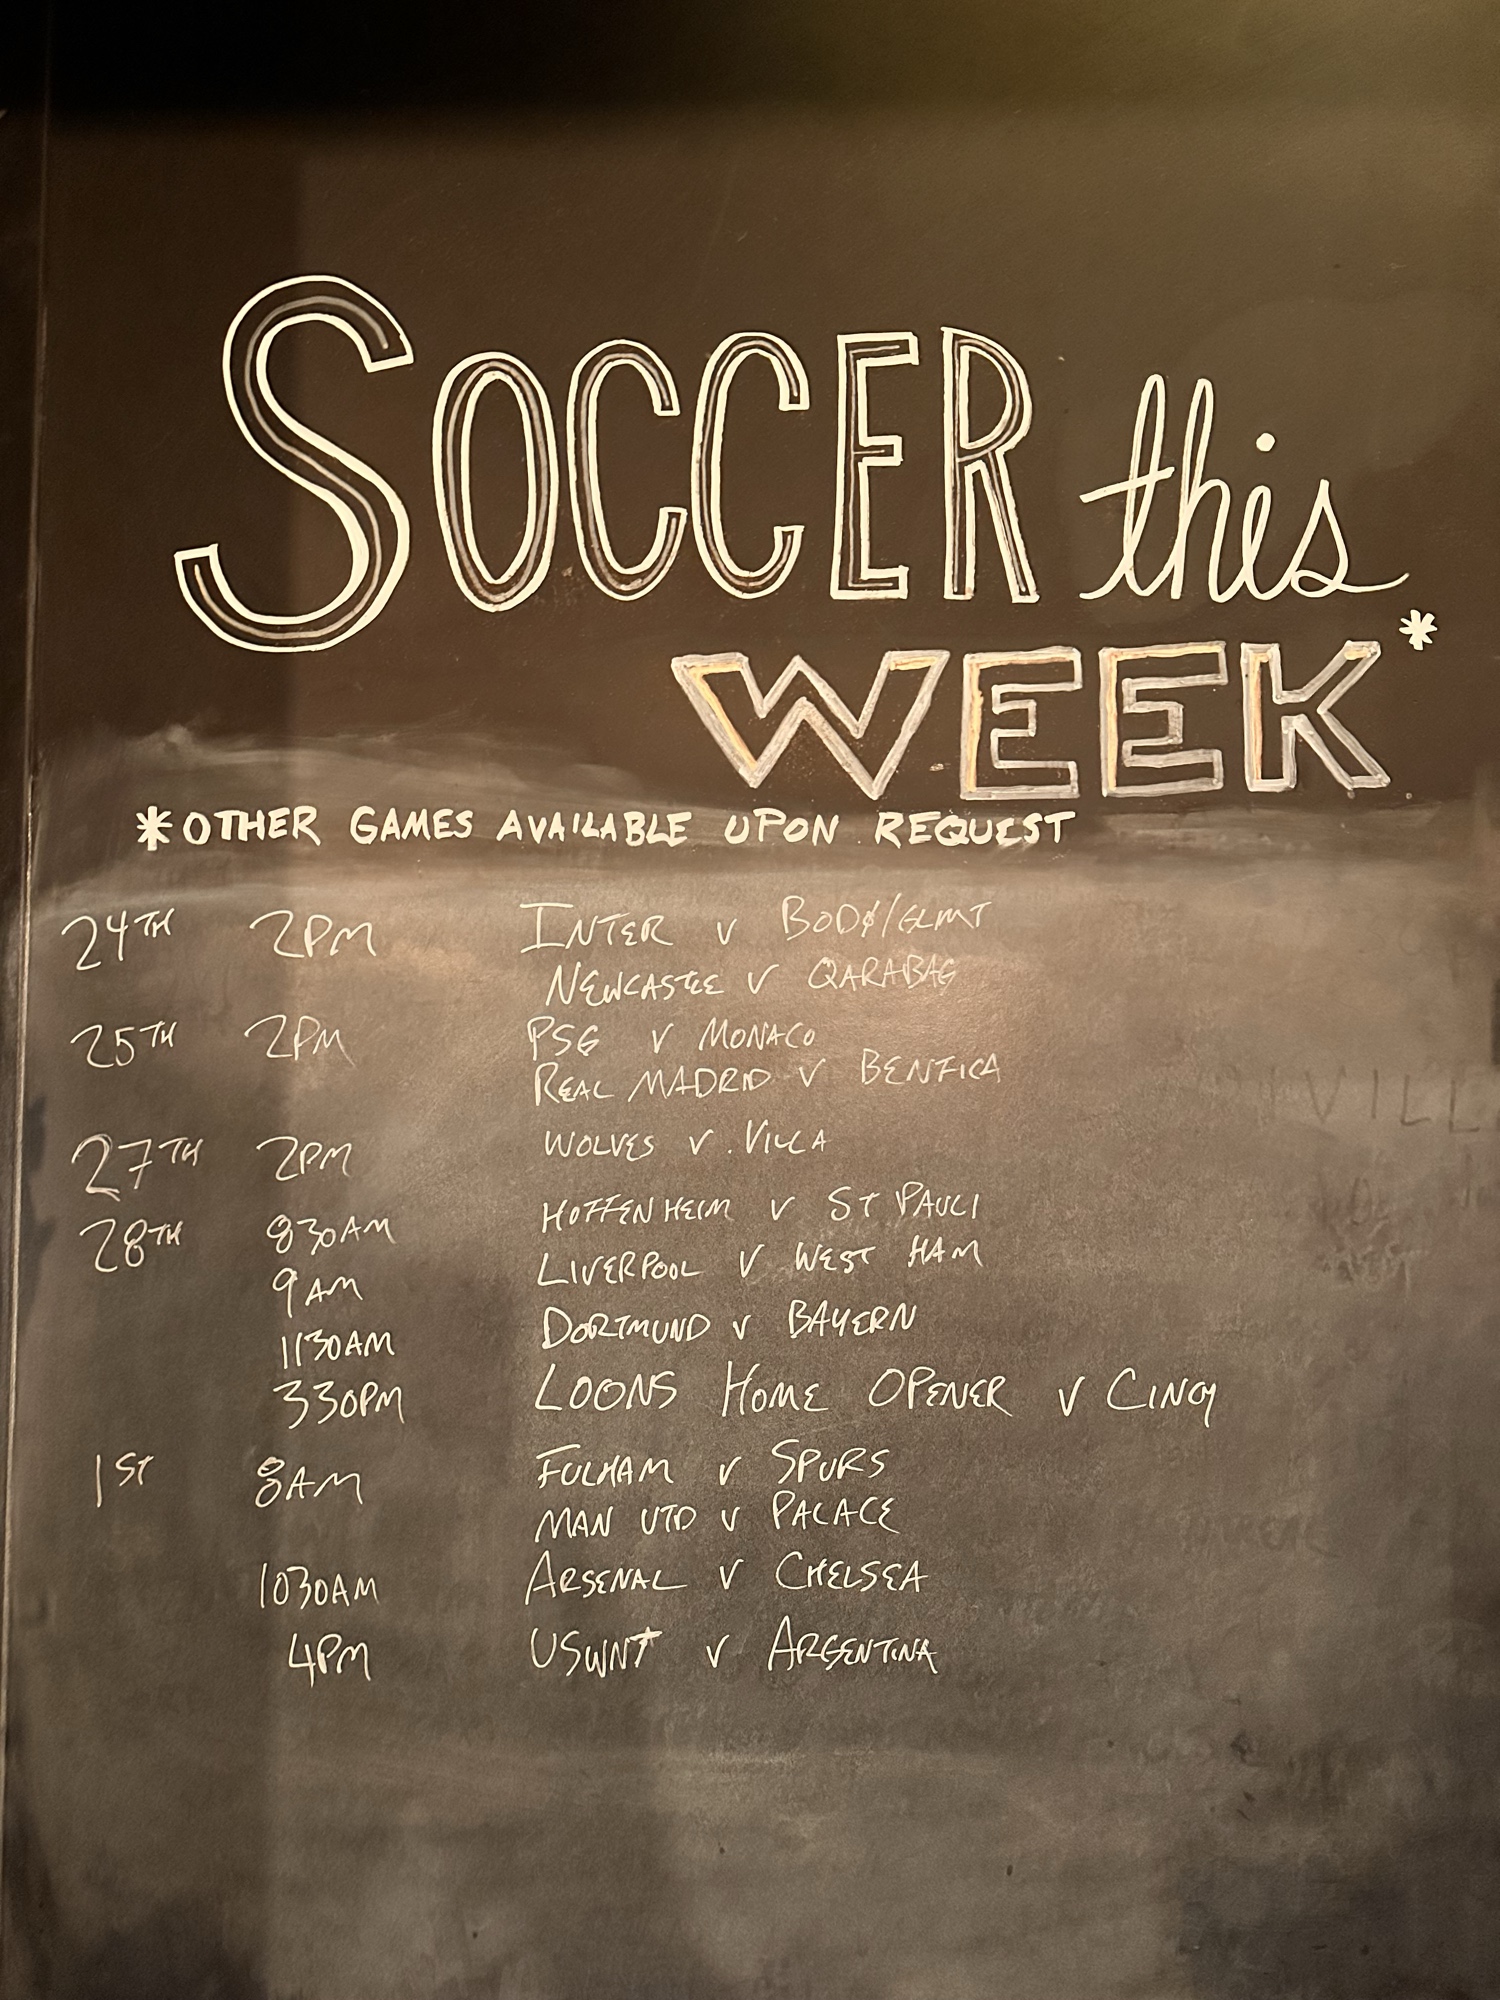 SOCCER this
WEEK*
*OTHER GAMES AVAILABLE UPON REQUEST
24TH 2PM INTER v BODØ/GLMT
NEWCASTLE v QARABAG
25TH 2PM PSG v MONACO
REAL MADRID v BENFICA
27TH 2PM WOLVES v. VILLA
28TH 830AM HOFFENHEIM v ST PAULI
9AM LIVERPOOL v WEST HAM
1130AM DORTMUND v BAYERN
330PM LOONS HOME OPENER v CINCY
1ST 8AM FULHAM v SPURS
MAN UTD v PALACE
1030AM ARSENAL v CHELSEA
4PM USWNT v ARGENTINA